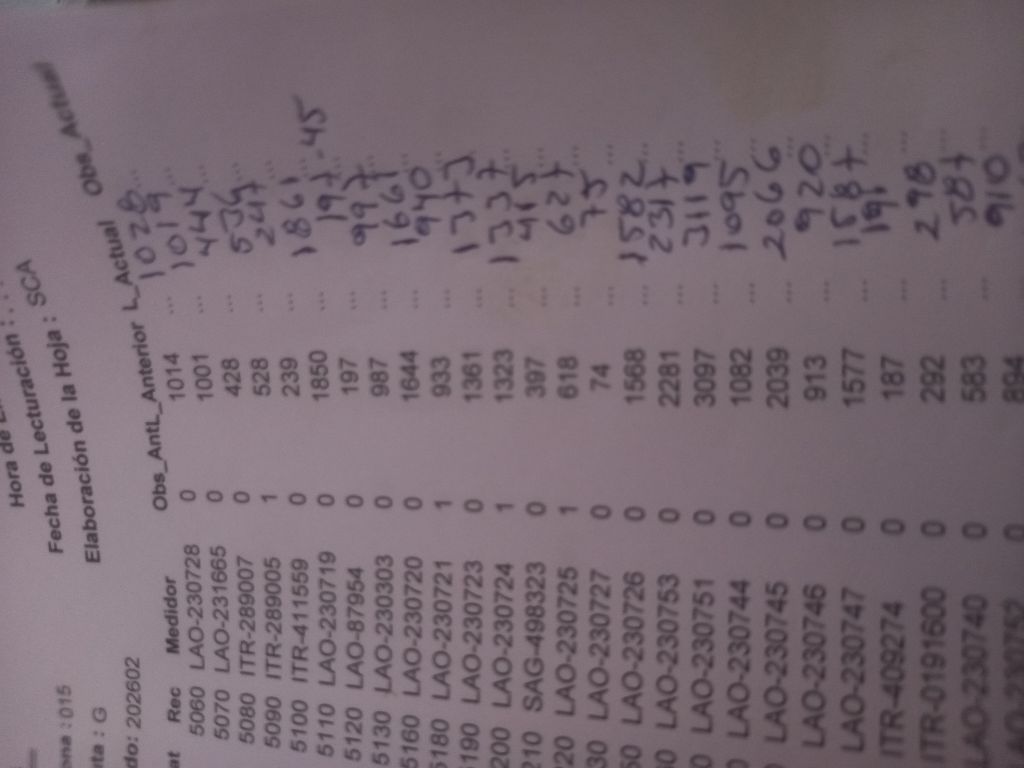 Hora de
Fecha de Lecturación : . . .
: 015 Elaboración de la Hoja : SCA
: G
do: 202602
at Rec Medidor Obs_Ant L_Anterior L_Actual Obs_Actual
5060 LAO-230728 0 1014 ... 1028 ...
5070 LAO-231665 0 1001 ... 1019 ...
5080 ITR-289007 0 428 ... 444 ...
5090 ITR-289005 1 528 ... 536 ...
5100 ITR-411559 0 239 ... 247 ...
5110 LAO-230719 0 1850 ... 1861 ...
5120 LAO-87954 0 197 ... 197 -45
5130 LAO-230303 0 987 ... 997 ...
5160 LAO-230720 0 1644 ... 1661 ...
5180 LAO-230721 1 933 ... 940 ...
5190 LAO-230723 0 1361 ... 1373 ...
200 LAO-230724 1 1323 ... 1337 ...
210 SAG-498323 0 397 ... 415 ...
220 LAO-230725 1 618 ... 627 ...
30 LAO-230727 0 74 ... 75 ...
50 LAO-230726 0 1568 ... 1582 ...
0 LAO-230753 0 2281 ... 2317 ...
0 LAO-230751 0 3097 ... 3119 ...
0 LAO-230744 0 1082 ... 1095 ...
LAO-230745 0 2039 ... 2066 ...
LAO-230746 0 913 ... 920 ...
LAO-230747 0 1577 ... 1587 ...
ITR-409274 0 187 ... 191 ...
ITR-0191600 0 292 ... 298 ...
LAO-230740 0 583 ... 587 ...
LAO-230752 0 894 ... 910